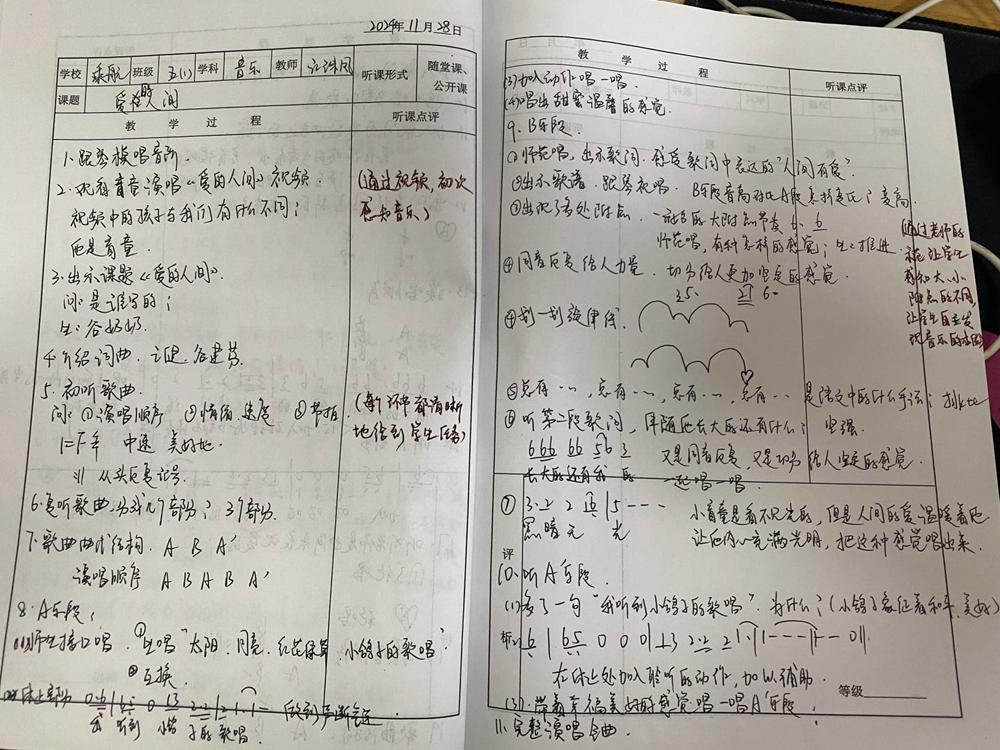 2024年11月28日
学校 乘航 班级 五(1) 学科 音乐 教师 听课形式 随堂课、公开课
课题 爱的人间
教 学 过 程 听课点评
1. 跟琴模唱音阶.
2. 观看盲童演唱《爱的人间》视频.
(通过视频,初次感知音乐)
视频中的孩子与我们有什么不同;
他是盲童.
3. 出示课题《爱的人间》.
问:是谁写的;
生:谷奶奶.
4. 介绍词曲. 谷建芬.
5. 初听歌曲.
问: ①演唱顺序 ②情绪、速度 ③节拍.
(每个环节都清晰地给到学生任务)
中速 美好地
从头反复记号.
6. 复听歌曲,分成几个部分; 3个部分.
7. 歌曲曲式结构. A B A'
演唱顺序 A B A B A'
8. A乐段;
(1)师生接口唱. ①生唱"太阳、月亮、红花绿草、小鸽子的歌唱"
②互换.
(2)休止部分
听到 小鸽子的歌唱.
教 学 过 程 听课点评
(3)加入动作唱一唱.
(4)唱出甜蜜温馨的感觉.
9. B乐段.
①师范唱,出示歌词. 感受歌词中表达的"人间有爱".
②出示歌谱. 跟琴视唱. B乐段音高对比A段怎样变化; 变高
③出现了多处附点.
师范唱,有种怎样的感觉; 生:推进
(通过老师的范唱让学生感知大、小附点的不同,让学生自主发现音乐的
④同音反复给人力量. 切分给人更加坚定的感觉.
④划一划旋律线.
⑤总有…, 总有…, 总有…, 总有… 是语文中的什么手法; 排比
⑥听第二段歌词, 伴随他长大的还有什么; 坚强.
666 66 56 3 又是同音反复,又是切分给人坚定的感觉.
长大的还有我的 一起唱一唱.
⑦ 3·2 2 | 5 - - -
黑暗无 光
小盲童是看不见光的,但是人间的爱温暖着他
让他内心充满光明,把这种感觉唱出来.
评
10. 听A'乐段.
(1)多了一句"我听到小鸽子的歌唱". 为什么;(小鸽子象征着和平、美好)
在休止处加入聆听的动作,加以辅助.
等级
(3). 带着幸福美好的感觉唱一唱A'乐段;
11. 完整演唱全曲.